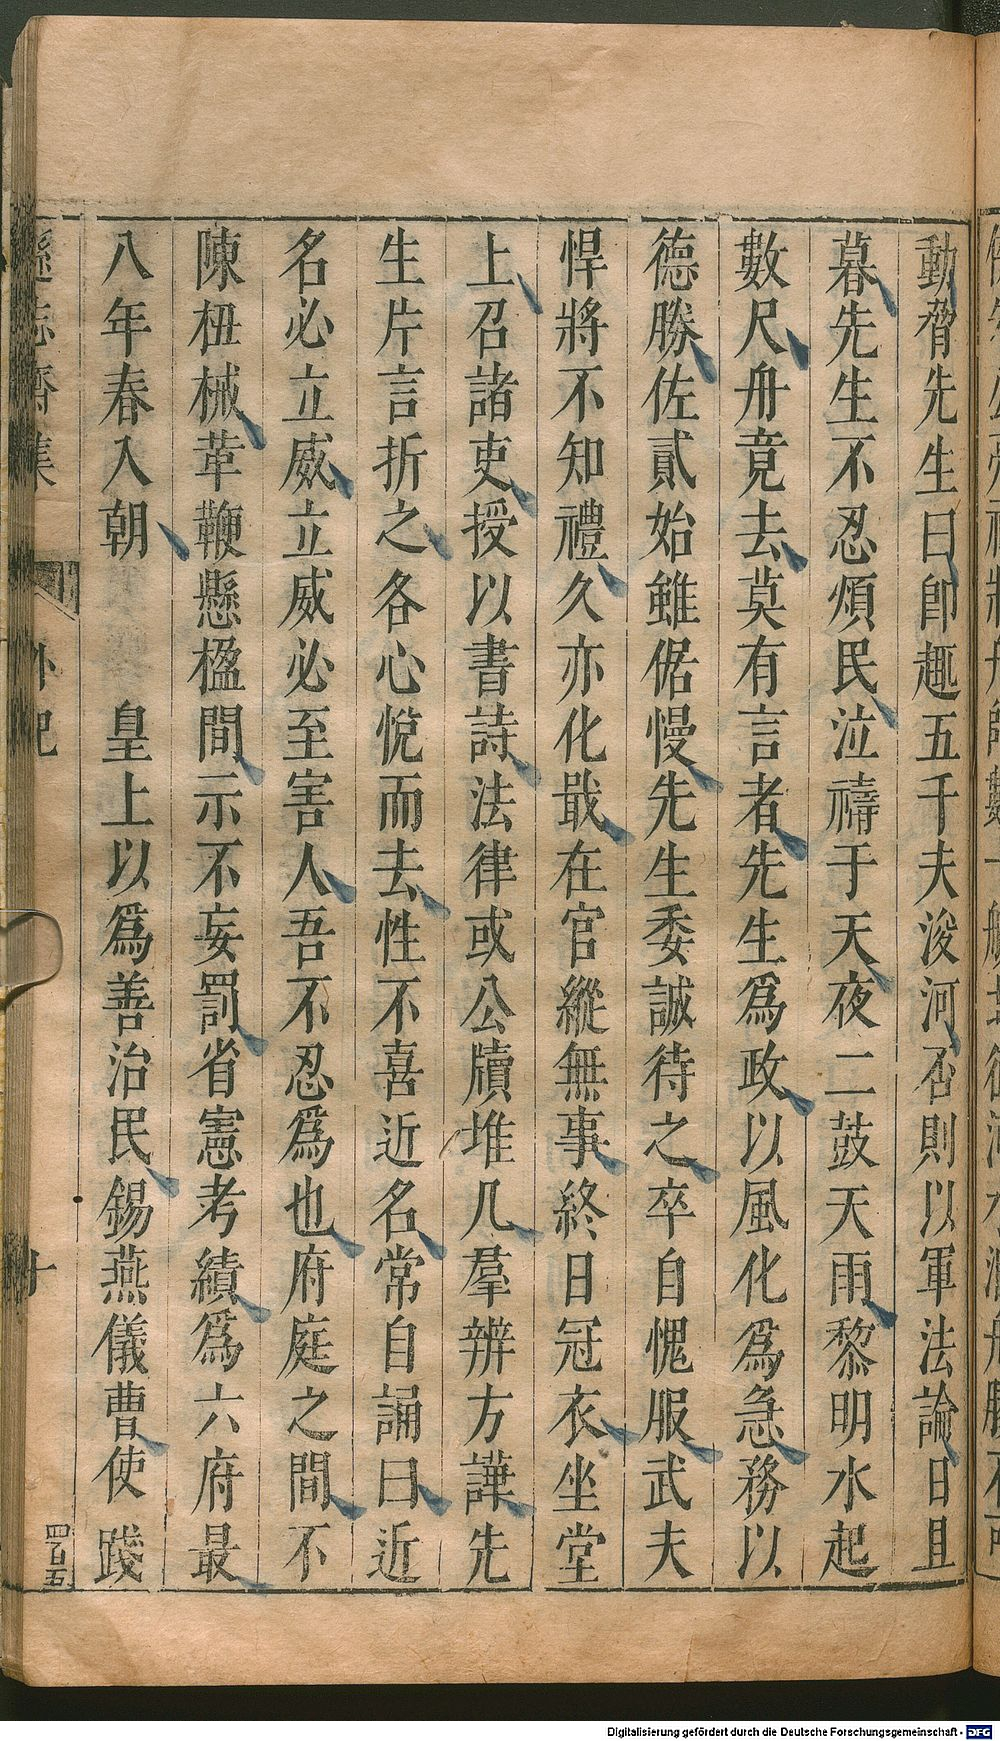 動脅先生曰卽趣五千夫浚河否則以軍法論日且
暮先生不忍煩民泣禱于天夜二鼓天雨黎明水起
數尺舟竟去莫有言者先生爲政以風化爲急務以
德勝佐貳始雖倨慢先生委誠待之卒自愧服武夫
悍將不知禮久亦化戢在官縱無事終日冠衣坐堂
上召諸吏授以書詩法律或公牘堆几羣辨方譁先
生片言折之各心悅而去性不喜近名常自誦曰近
名必立威立威必至害人吾不忍爲也府庭之間不
陳杻械葦鞭懸楹間示不妄罰省憲考績爲六府最
八年春入朝 皇上以爲善治民錫燕儀曹使踐
遜志齋集 外紀 十 四百五
Digitalisierung gefördert durch die Deutsche Forschungsgemeinschaft - DFG